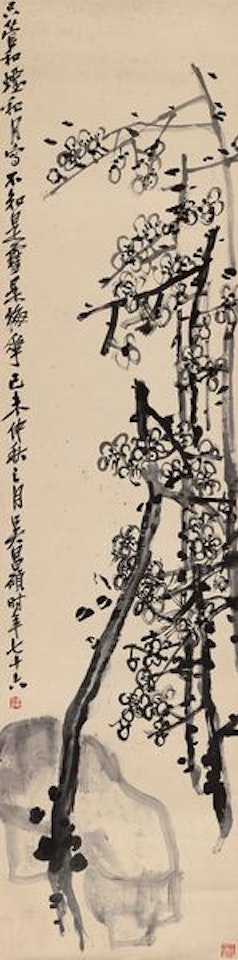 只管和煙和月寫不知是雪是梅華己未仲秋之月吳昌碩時年七十六